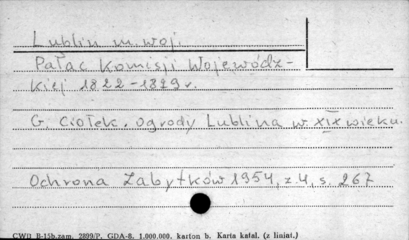 Lublin m. woj.
Pałac Komisji Wojewódz-
kiej 1822-1829 r.
G. Ciołek, Ogrody Lublina w XIX wieku.
Ochrona Zabytków 1954, z. 4, s. 267
CWD B-15b zam. 2899/P. GDA-8. 1.000.000. karton b. Karta katal. (z liniat.)